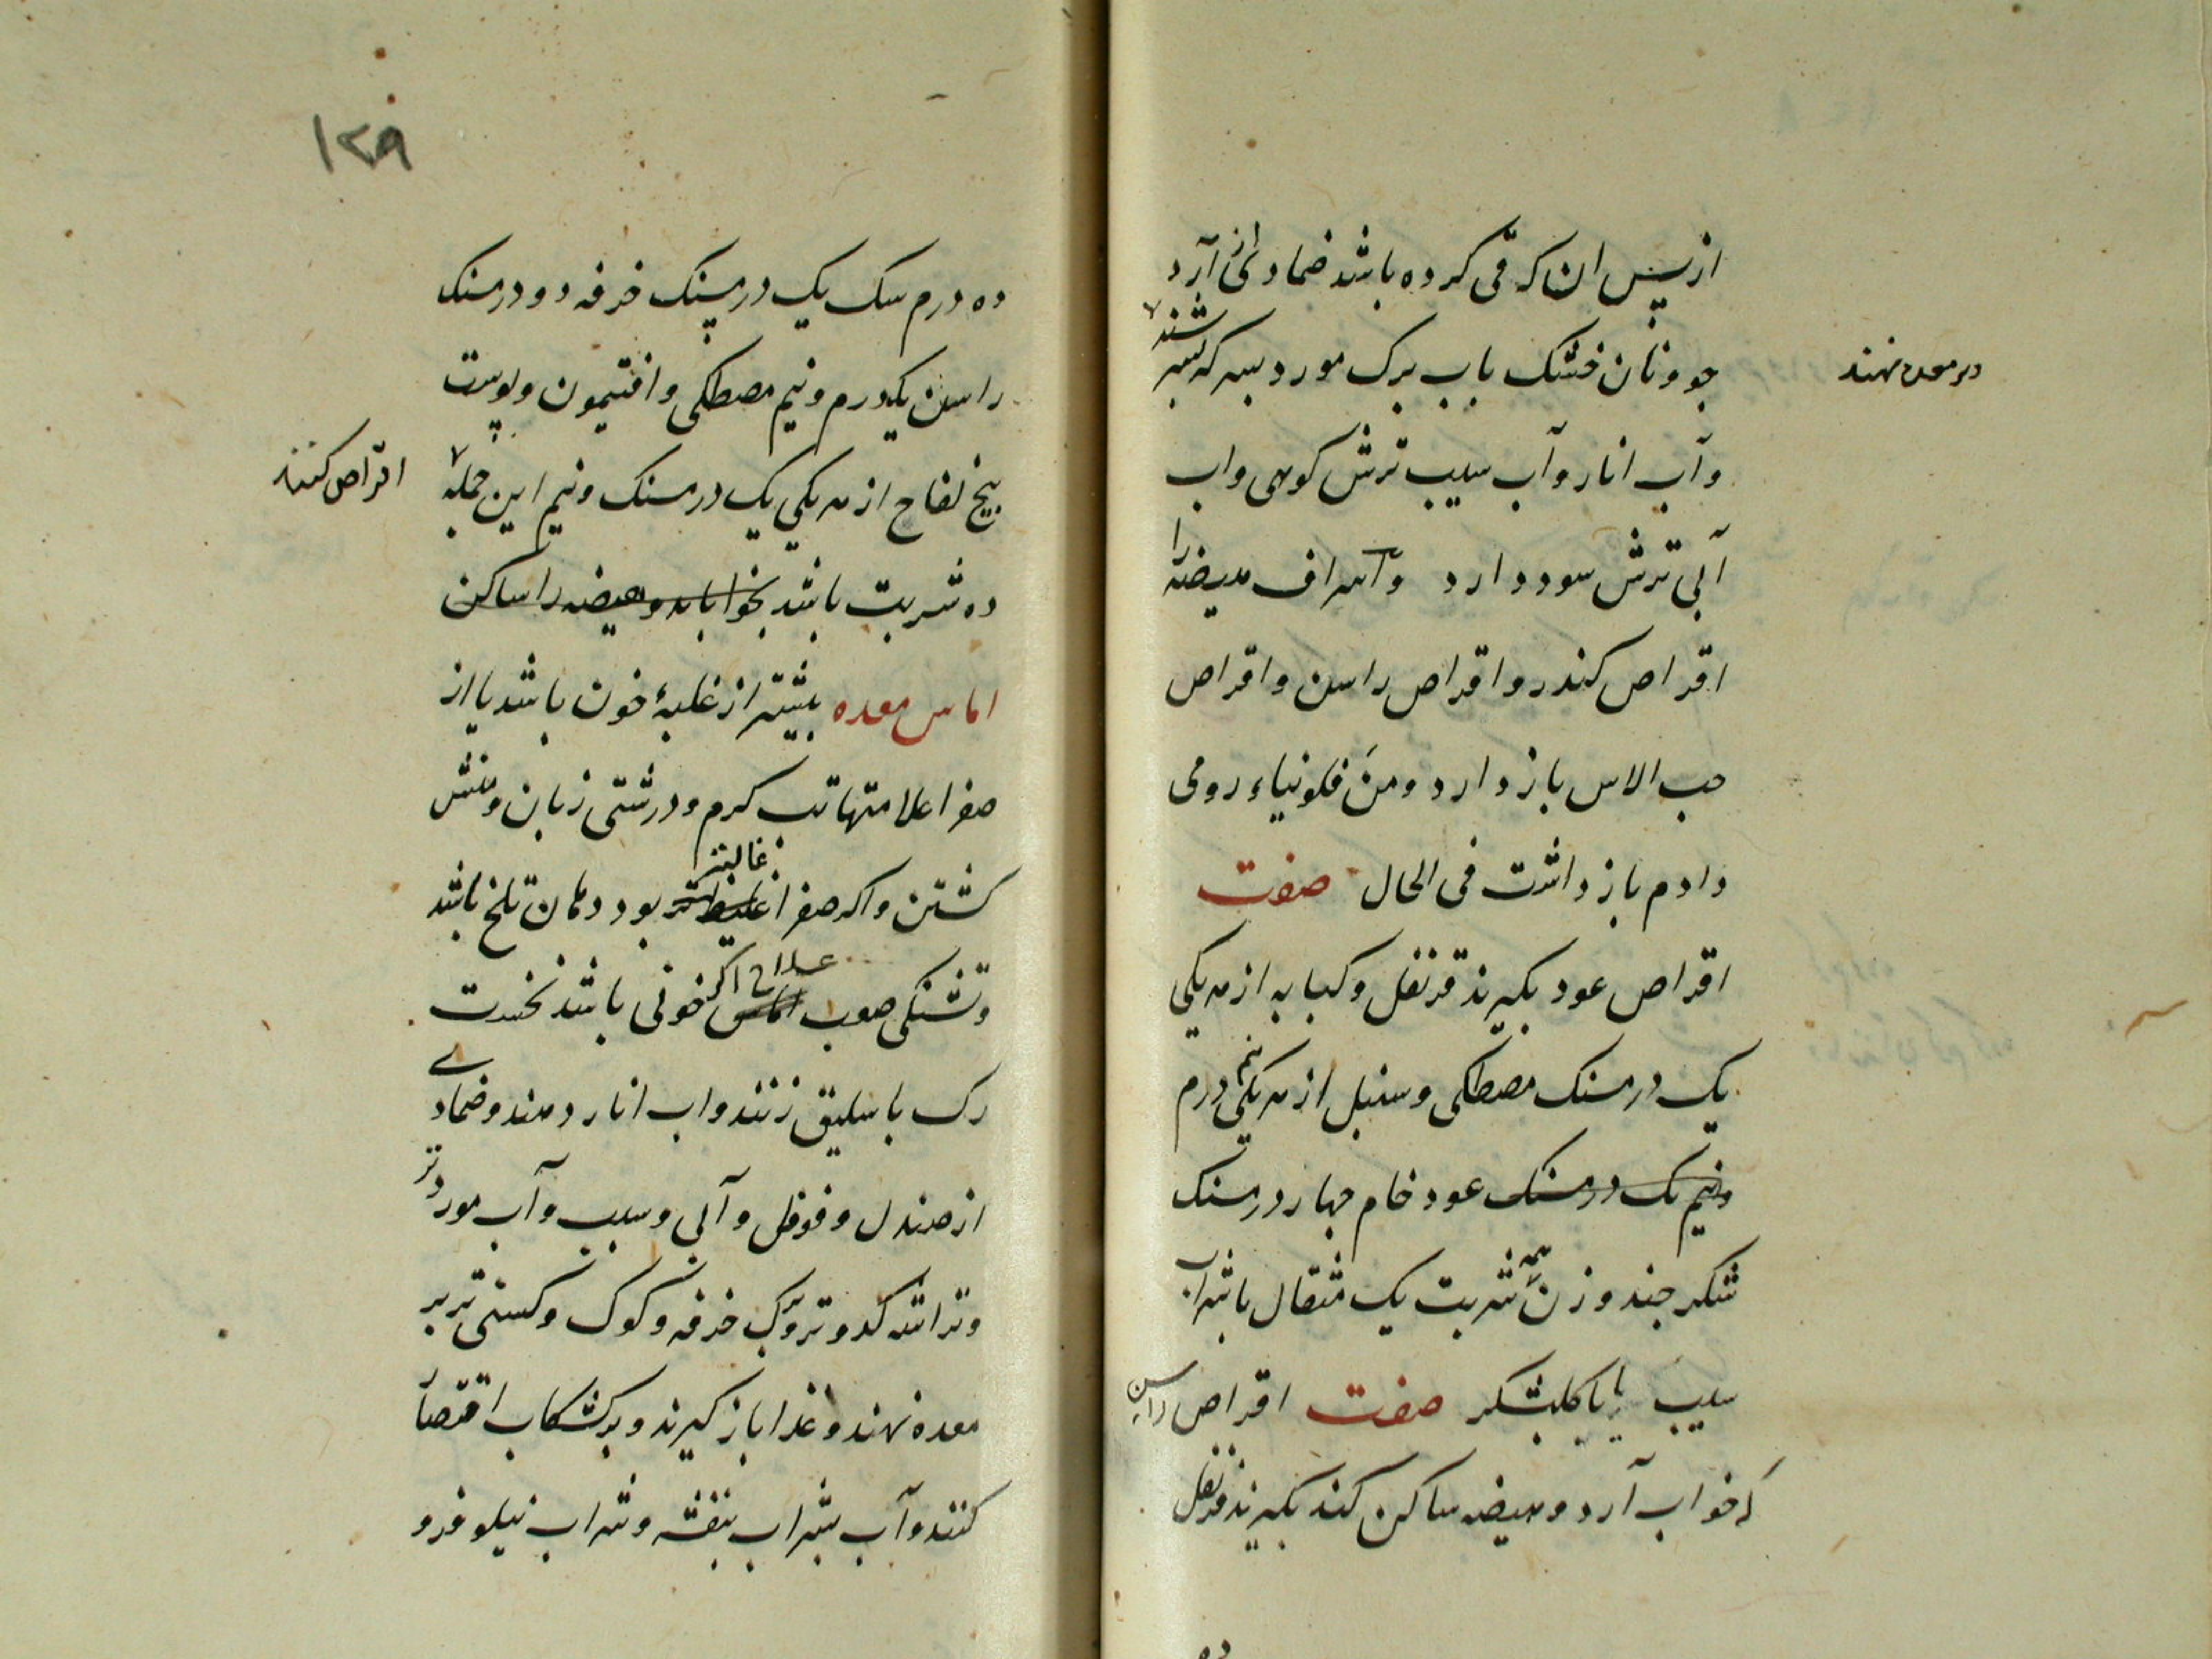 از پس ان که قی کرده باشد ضماد از آرد
جو و نان خشک باب برک مورد بسرکه بسرشند
بر معده نهند
وآب انار وآب سیب ترش کوهی واب
آبی ترش سود دارد واسراف هیضه را
اقراص کندر واقراص راسن واقراص
حب الاس باز دارد ومن فلونیاء رومی
دادم باز داشت فی الحال صفت
اقراص عود بکیرند قرنفل وکبابه از هر یکی
یک درمسنک مصطکی وسنبل از هر یکی نیم درم
ونیم یک درمسنک عود خام چهار درمسنک
شکر چند وزن همه شربت یک مثقال باشراب
سیب یا باکلبشکر صفت اقراص راسن
که خواب آرد وهیضه ساکن کند بکیرند قرنفل
ده
۱۲۹
ده درم سک یک درمسنک خرفه دو درمسنک
راسن یکدرم ونیم مصطکی وافتیمون وپوست
بیخ لفاح از هر یکی یک درمسنک ونیم این جمله
اقراص کنند
ده شربت باشد بخواباند وهیضه را ساکن
اماس معده بیشتر از غلبهٔ خون باشد یا از
صفرا علامتها تب کرم ودرشتی زبان ومنش
کشتن واکر صفرا غلیظ تر غالبتر بود دهان تلخ باشد
وتشنکی صعب اماس علاج اکر خونی باشد نخست
رک باسلیق زنند واب انار دهند وضمادی
از صندل وفوفل وآبی وسیب وآب مورد تر
وتراشه کدو وتروبرک خرفه وکوک وکسنی تر بر
معده نهند وغذا باز کیرند وبرکشکاب اقتصار
کنند وآب بشراب بنفشه وشراب نیلوفر و